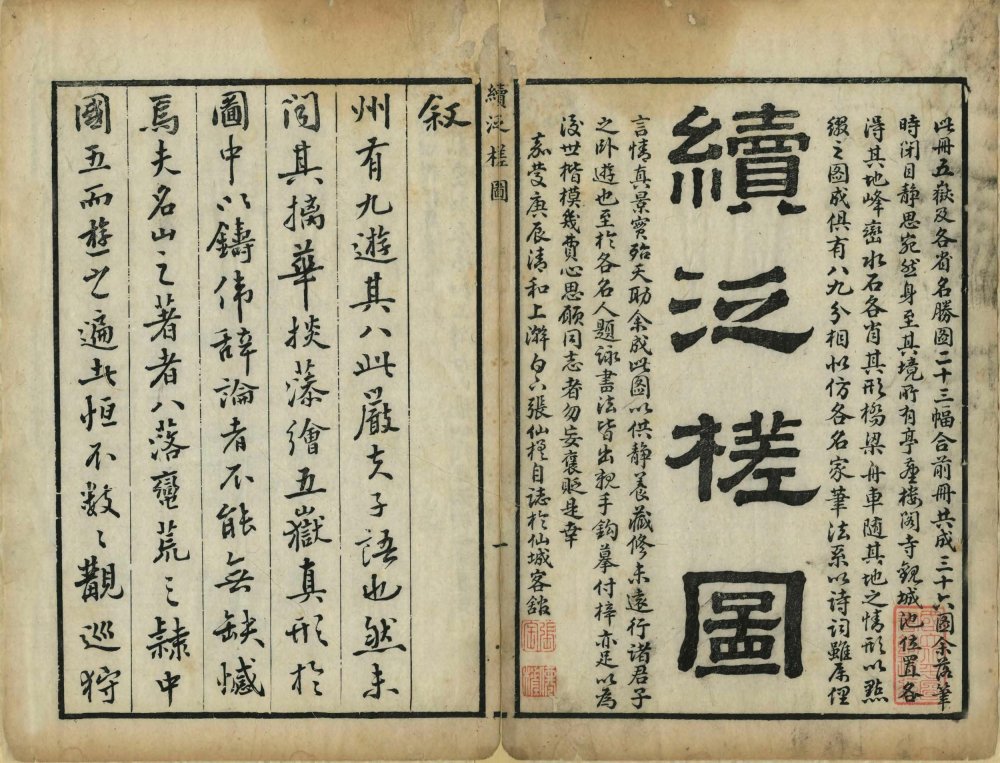 此冊五嶽及各省名勝圖二十三幅合前冊共成三十六圖余落筆
時閉目静思宛然身至其境所有亭臺楼阁寺觀城池位置各
得其地峰巒水石各肖其形橋梁舟車随其地之情形以點
綴之图成俱有八九分相似仿各名家筆法系以诗词雖属俚
續泛槎圖
言情真景實殆天助余成此图以供静養藏修未遠行诸君子
之卧遊也至於各名人題詠書法皆出親手鈎摹付梓亦足以為
後世楷模幾費心思願同志者勿妄褒貶是幸
嘉慶庚辰清和上澣白下張仙槎自誌於仙城客舘
續泛槎圖
一
叙
州有九遊其八此嚴夫子語也然未
聞其摛華掞藻繪五嶽真形於
圖中以鑄偉辭論者不能無缺憾
焉夫名山之著者八落蠻荒之隷中
國五而遊之遍太恒不数々觀巡狩